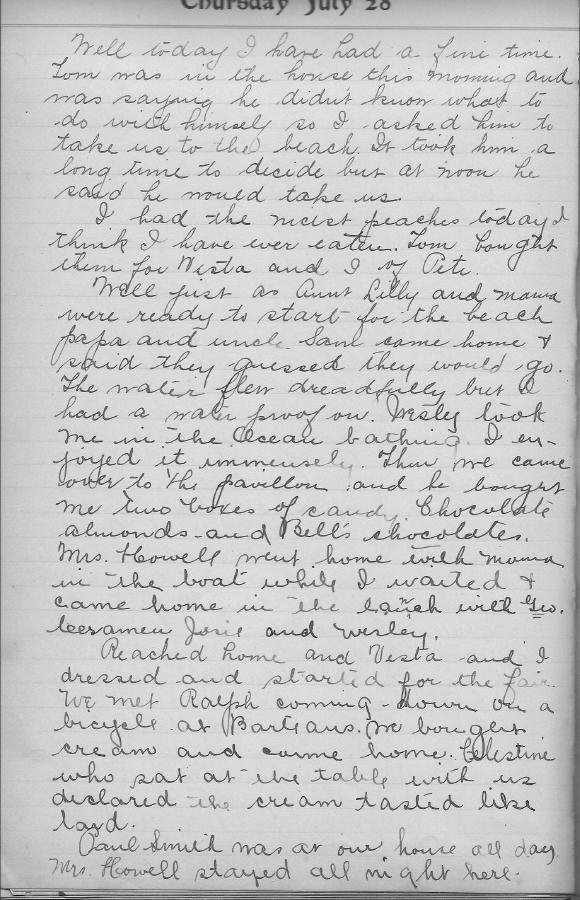 Thursday July 28
Well today I have had a fine time.
Tom was in the house this morning and
was saying he didn't know what to
do with himself so I asked him to
take us to the beach. It took him a
long time to decide but at noon he
said he would take us.
I had the nicest peaches today I
think I have ever eaten. Tom bought
them for Vesta and I of Pete.
Well just as Aunt Lilly and mama
were ready to start for the beach
papa and uncle Sam came home &
said they guessed they would go.
The water flew dreadfully but I
had a water proof on. Wesley took
me in the Ocean bathing. I en-
joyed it immensely. Then we came
over to the pavillon and he bought
me two boxes of candy. Chocolate
almonds and Bell's chocolates.
Mrs. Howell went home with mama
in the boat while I waited &
came home in the lanch with Geo.
Josie and Wesley.
Reached home and Vesta and I
dressed and started for the fair.
We met Ralph coming down on a
bicycle at We bought
cream and came home. Celestine
who sat at the table with us
declared the cream tasted like
lard.
Paul Smith was at our house all day.
Mrs. Howell stayed all night here.